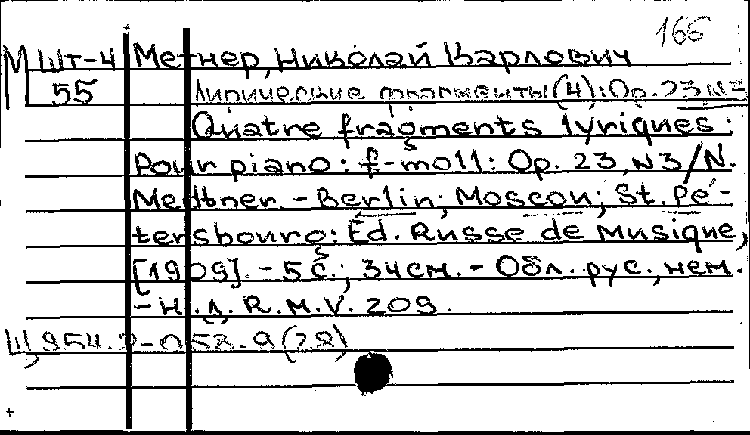 166
М Шт-4 Метнер, Николай Карлович
55 Лирические фрагменты (4): Ор. 23 N3
Quatre fragments lyriques:
Pour piano: f-moll: Op. 23, N3/N.
Medtner. - Berlin; Moscou; St. Pé-
tersbourg: Ed. Russe de Musique,
[1909]. - 5 с.; 34 см. - Обл. рус., нем.
- Н. д. R.M.V. 209.
Щ 954.2-058.9(29)